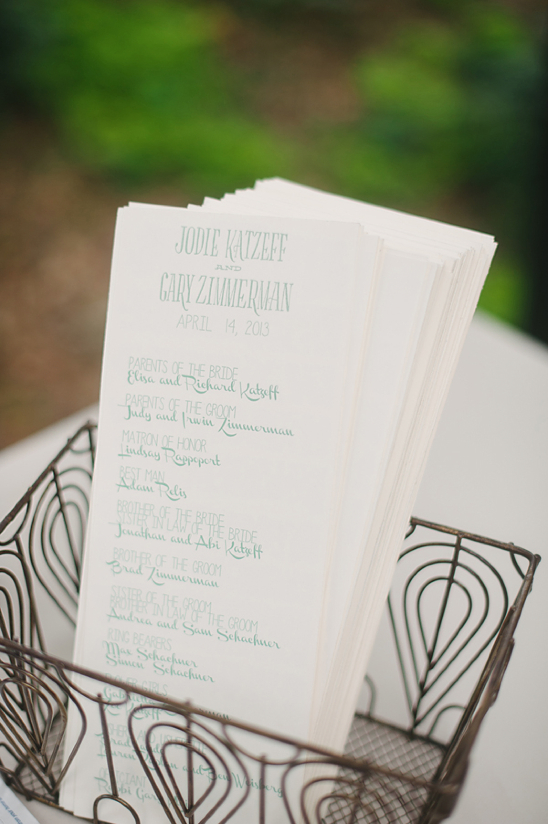 JODIE KATZEFF
AND
GARY ZIMMERMAN
APRIL 14, 2013
PARENTS OF THE BRIDE
Elisa and Richard Katzeff
PARENTS OF THE GROOM
Judy and Irwin Zimmerman
MATRON OF HONOR
Lindsay Rappaport
BEST MAN
Adam Relis
BROTHER OF THE BRIDE
SISTER IN LAW OF THE BRIDE
Jonathan and Abi Katzeff
BROTHER OF THE GROOM
Brad Zimmerman
SISTER OF THE GROOM
BROTHER IN LAW OF THE GROOM
Andrea and Sam Schachner
RING BEARERS
Max Schachner
Simon Schachner
GIRLS
Rabbi